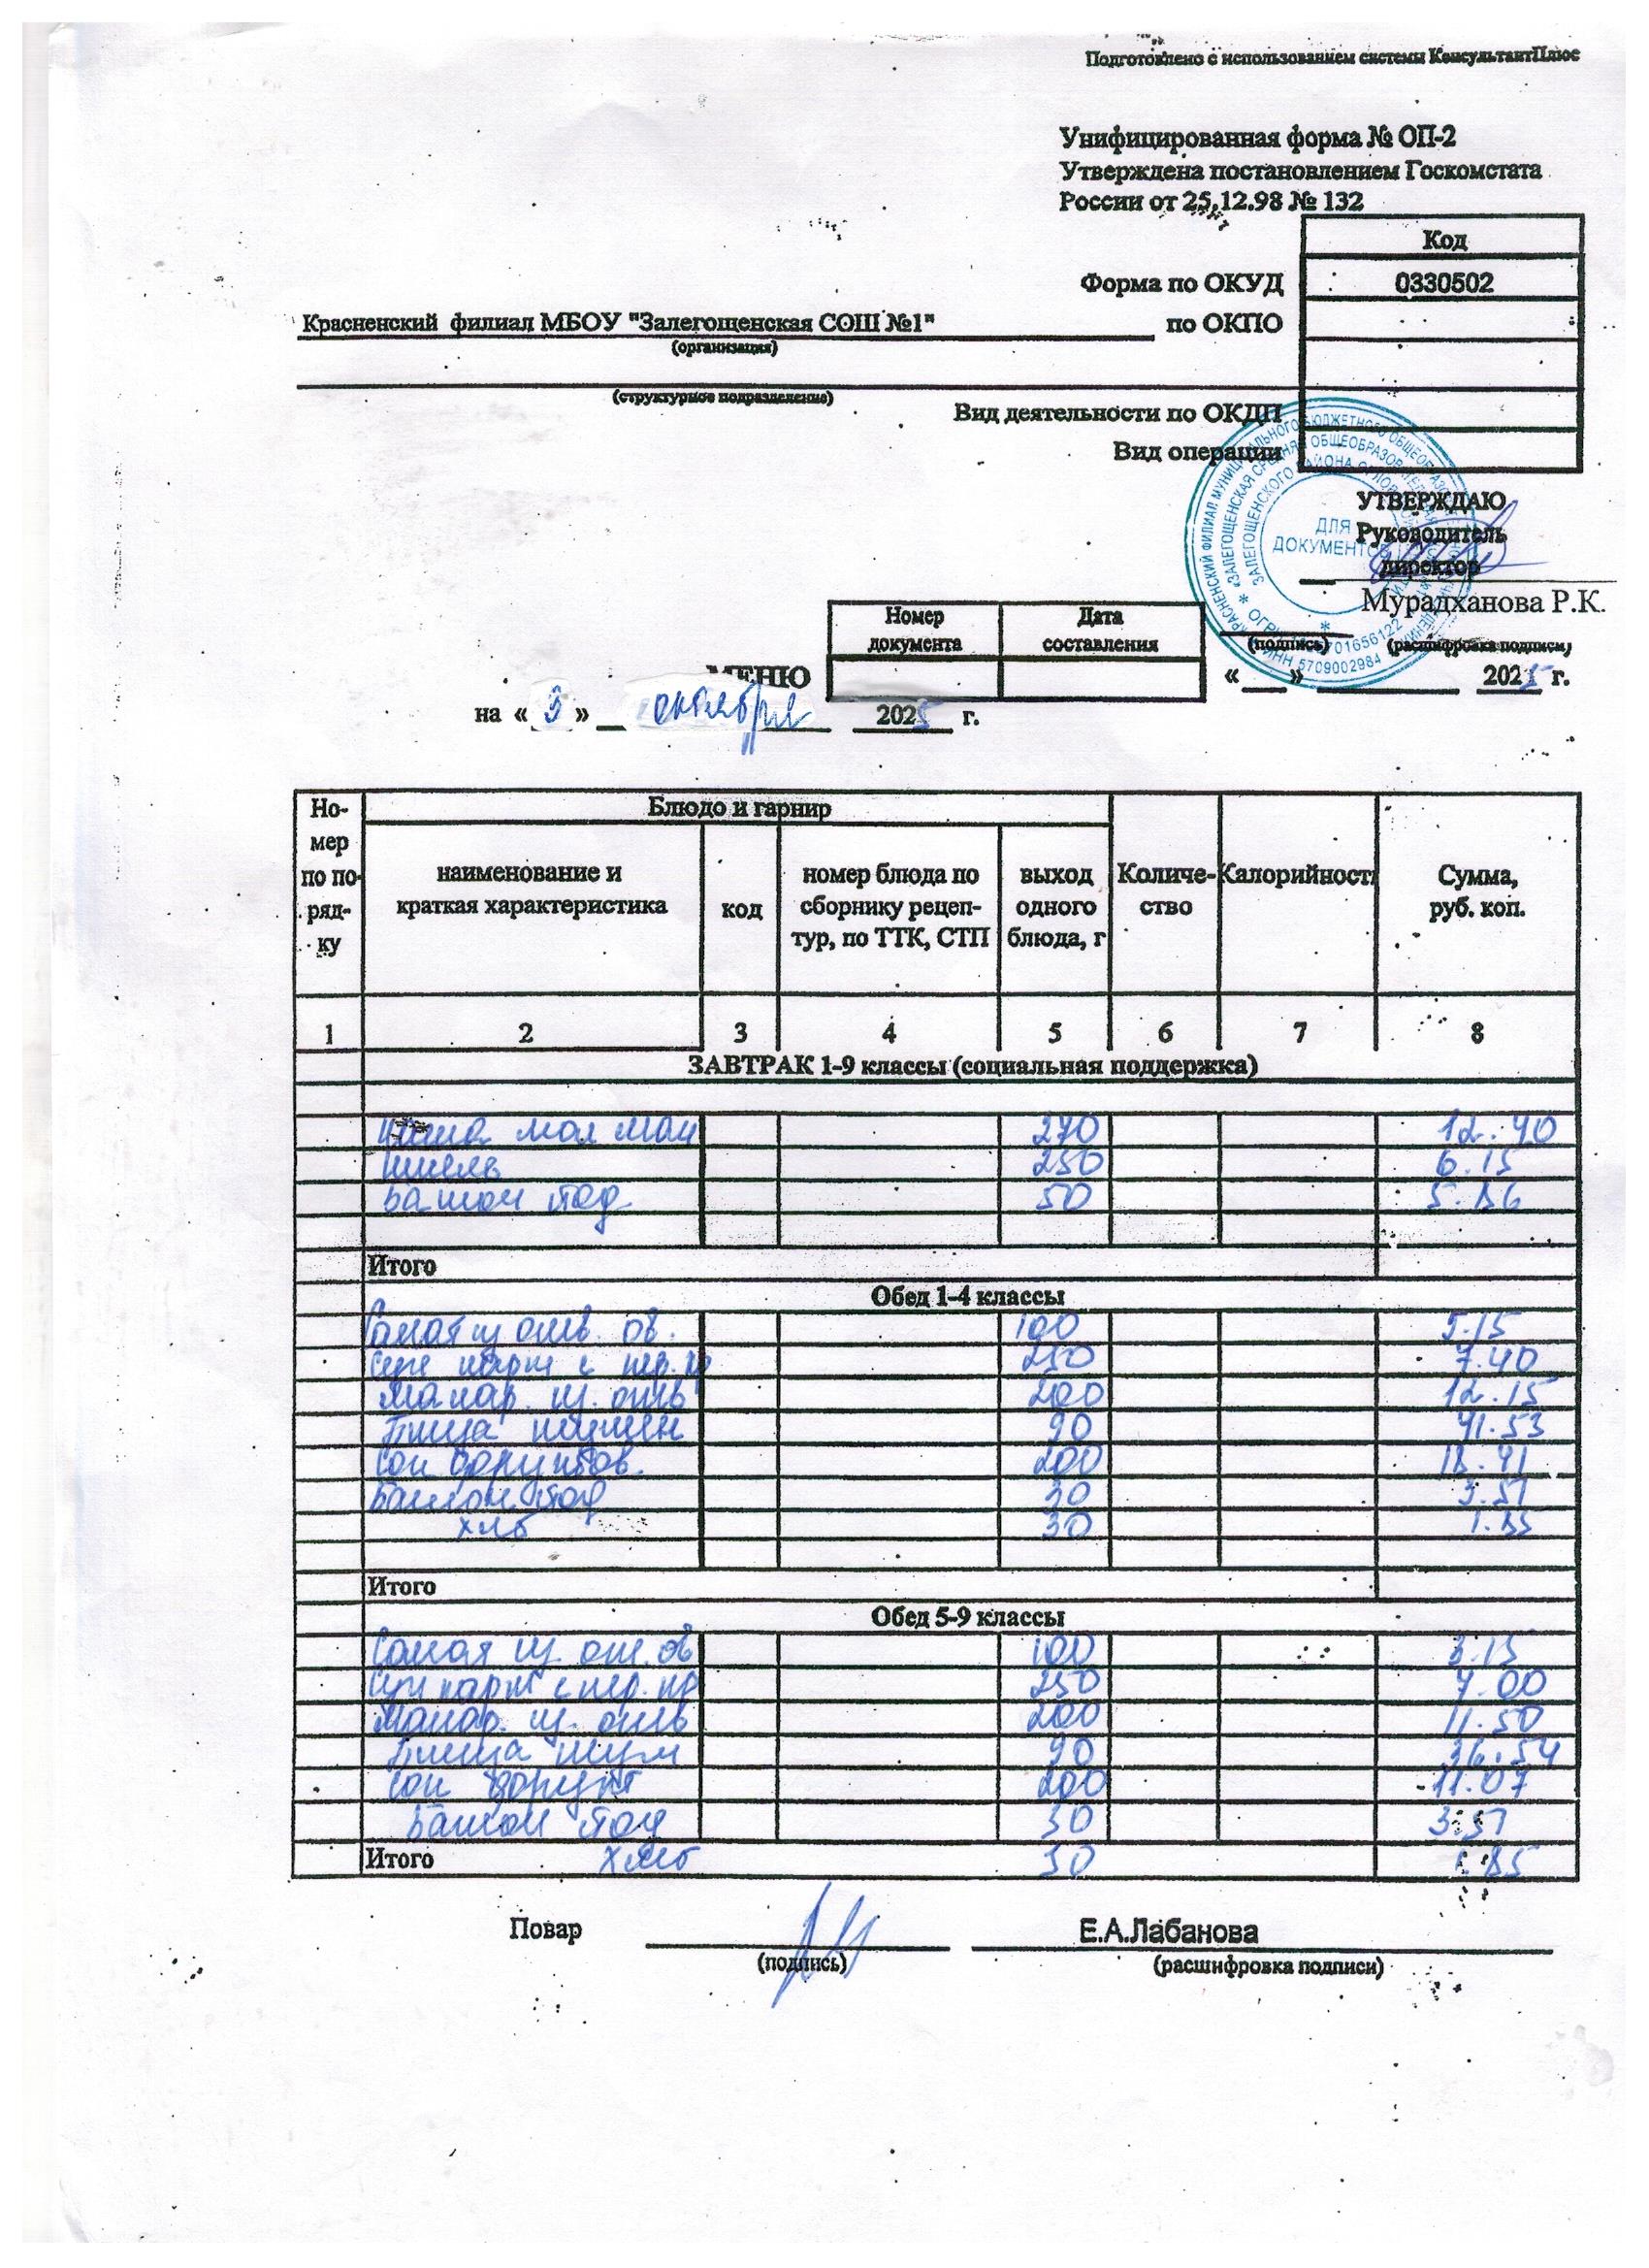 Подготовлено с использованием системы КонсультантПлюс
Унифицированная форма № ОП-2
Утверждена постановлением Госкомстата
России от 25.12.98 № 132
Код
Форма по ОКУД 0330502
Красненский филиал МБОУ "Залегощенская СОШ №1" по ОКПО
(организация)
(структурное подразделение)
Вид деятельности по ОКДП
Вид операции
УТВЕРЖДАЮ
Руководитель
директор
ДЛЯ
ДОКУМЕНТОВ
Мурадханова Р.К.
(подпись) (расшифровка подписи)
Номер документа Дата составления
МЕНЮ
« » 2025 г.
на « 3 » октября 2025 г.
Но-мер по по-ряд-ку
Блюдо и гарнир
наименование и краткая характеристика
код
номер блюда по сборнику рецеп-тур, по ТТК, СТП
выход одного блюда, г
Количе-ство
Калорийность
Сумма, руб. коп.
1 2 3 4 5 6 7 8
ЗАВТРАК 1-9 классы (социальная поддержка)
каша мол ман 270 12.40
кисель 250 6.15
Батон йод 50 5.86
Итого
Обед 1-4 классы
Салат 100 5.15
Суп карт с пер. 250 7.40
Макар. из. отв 200 12.15
Птица тушен 90 41.53
Сок фруктов. 200 18.41
Батон йод 30 3.51
хлеб 30 1.85
Итого
Обед 5-9 классы
Салат 100 3.15
Суп карт с пер. 250 7.00
Макар. из. отв 200 11.50
Птица туш 90 36.54
Сок фрукт 200 11.07
Батон йод 30 3.51
Итого хлеб 30 1.85
Повар Е.А.Лабанова
(подпись) (расшифровка подписи)